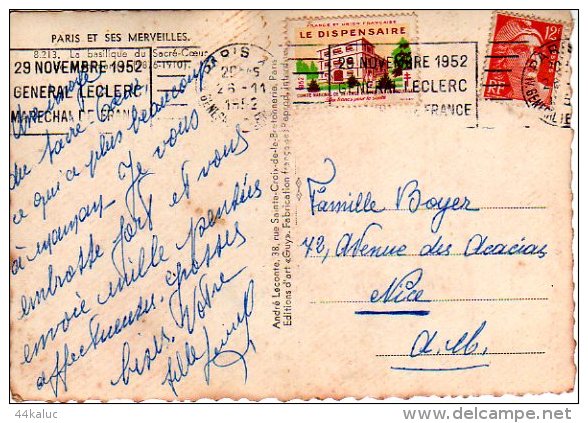 PARIS ET SES MERVEILLES.
8.213. La basilique du Sacré-Cœur
29 NOVEMBRE 1952
GENERAL LECLERC
MARECHAL DE FRANCE
PARIS
26-11
1952
FRANCE ET UNION FRANÇAISE
LE DISPENSAIRE
29 NOVEMBRE 1952
GENERAL LECLERC
DE FRANCE
12F
du Sacré Cœur,
ce qui a plus beaucoup
à maman. Je vous
embrasse fort et vous
envoie mille pensées
affectueuses. Grosses
bises. Votre
fille
André Leconte, 38, rue Sainte-Croix-de-la-Bretonnerie, Paris
Editions d'art «Guy». Fabrication française
Famille Boyer
72, Avenue des Acacias
Nice
A.M.
44kaluc
http://www.delcampe.net